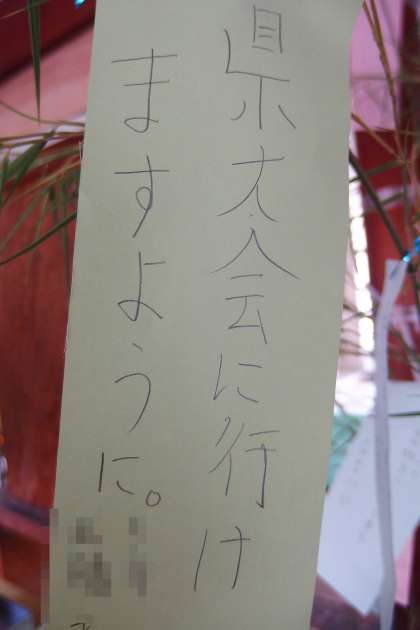 県大会に行け
ますように。